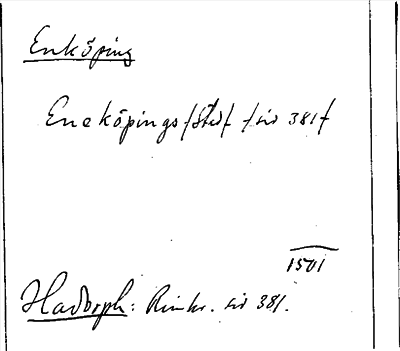 Enköping
Enekõpings /Sted/ /sid 381/
1501
Hadorph: Rimkr. sid 381.